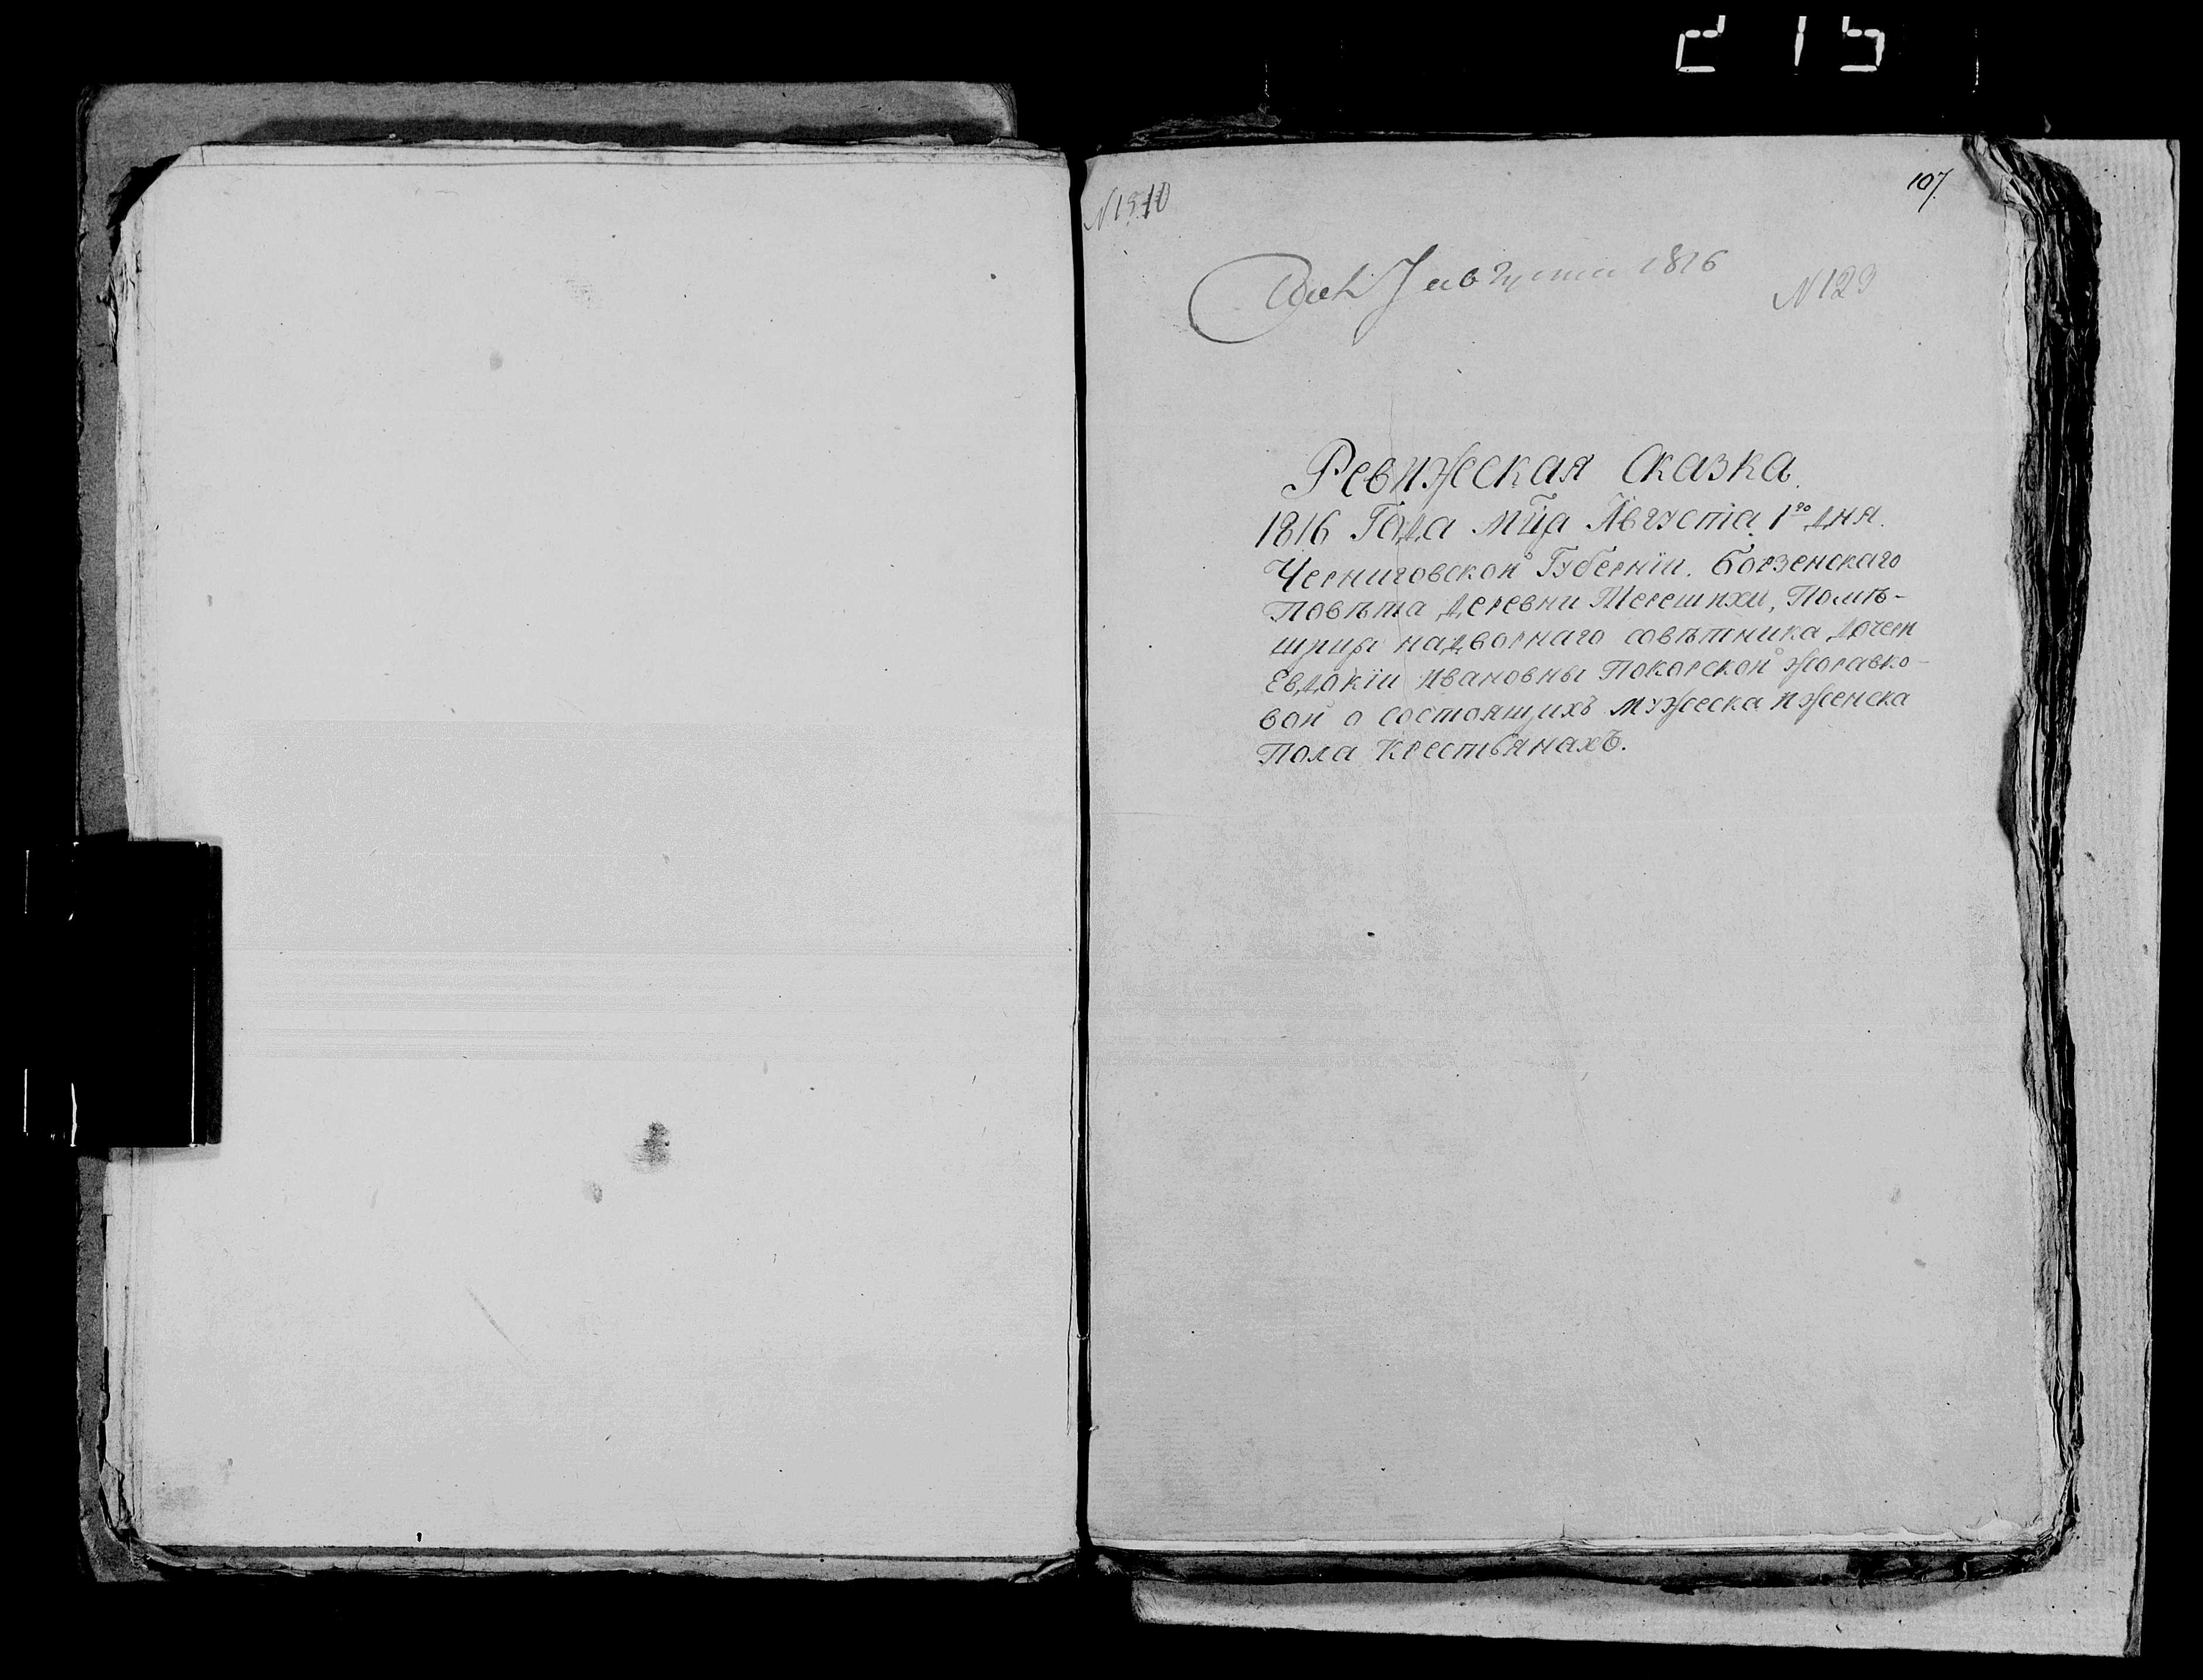 215
107
N 1510
7 августа 1816
N 129
Ревижская Сказка.
1816 Года Мця Августа 1го дня.
Черниговской Губерніи. Борзенскаго
Повѣта деревни Терешихи, Помѣ-
щица надворнаго совѣтника дочеть
Евдокіи Ивановны Покорской Жоравко-
вой о состоящихъ мужеска и женска
Пола Крестьянахъ.